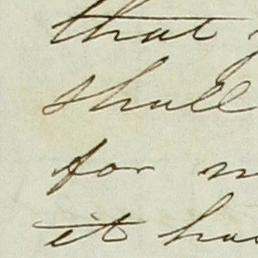 that
shall
for
it